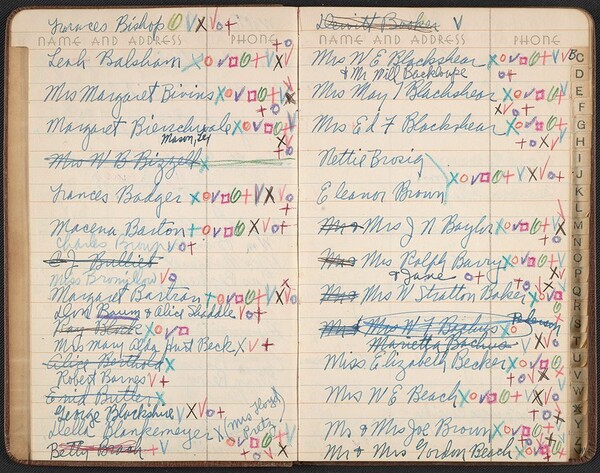 Frances Bishop
NAME AND ADDRESS PHONE
Leah Balsham
Mrs Margaret Bivins
Margaret Bierschwale
Mason, Tex
Mrs W B Bizzell
Frances Badger
Macena Barton
Charles Brown
C. J. Bulliet
Miss Bromilow
Margaret Bartran
Don Baum & Alice Shaddle
Kay Block
Mrs Mary Alda Hurt Beck
Alice Berthold
Robert Barnes
Enid Butler
George Blackshire
Della Blankemeyer (Mrs Floyd
Betty Brach
David Booker
NAME AND ADDRESS PHONE
Mrs W E Blackshear
& Mr Will
Mrs May T Blackshear
Mrs Ed F Blackshear
Nettie Brosig
Eleanor Brown
Mrs J N Baylor
Mrs Ralph Barry
& June
Mrs W Stratton Baker
Mrs W F
Marietta
Miss Elizabeth Becker
Mrs W E Beach
Mr & Mrs Joe Brown
Mr & Mrs Gordon Beach
B
C
D
E
F
G
H
I
J
K
L
M
N
O
P
Q
R
S
T
U
V
W
X
Y
Z